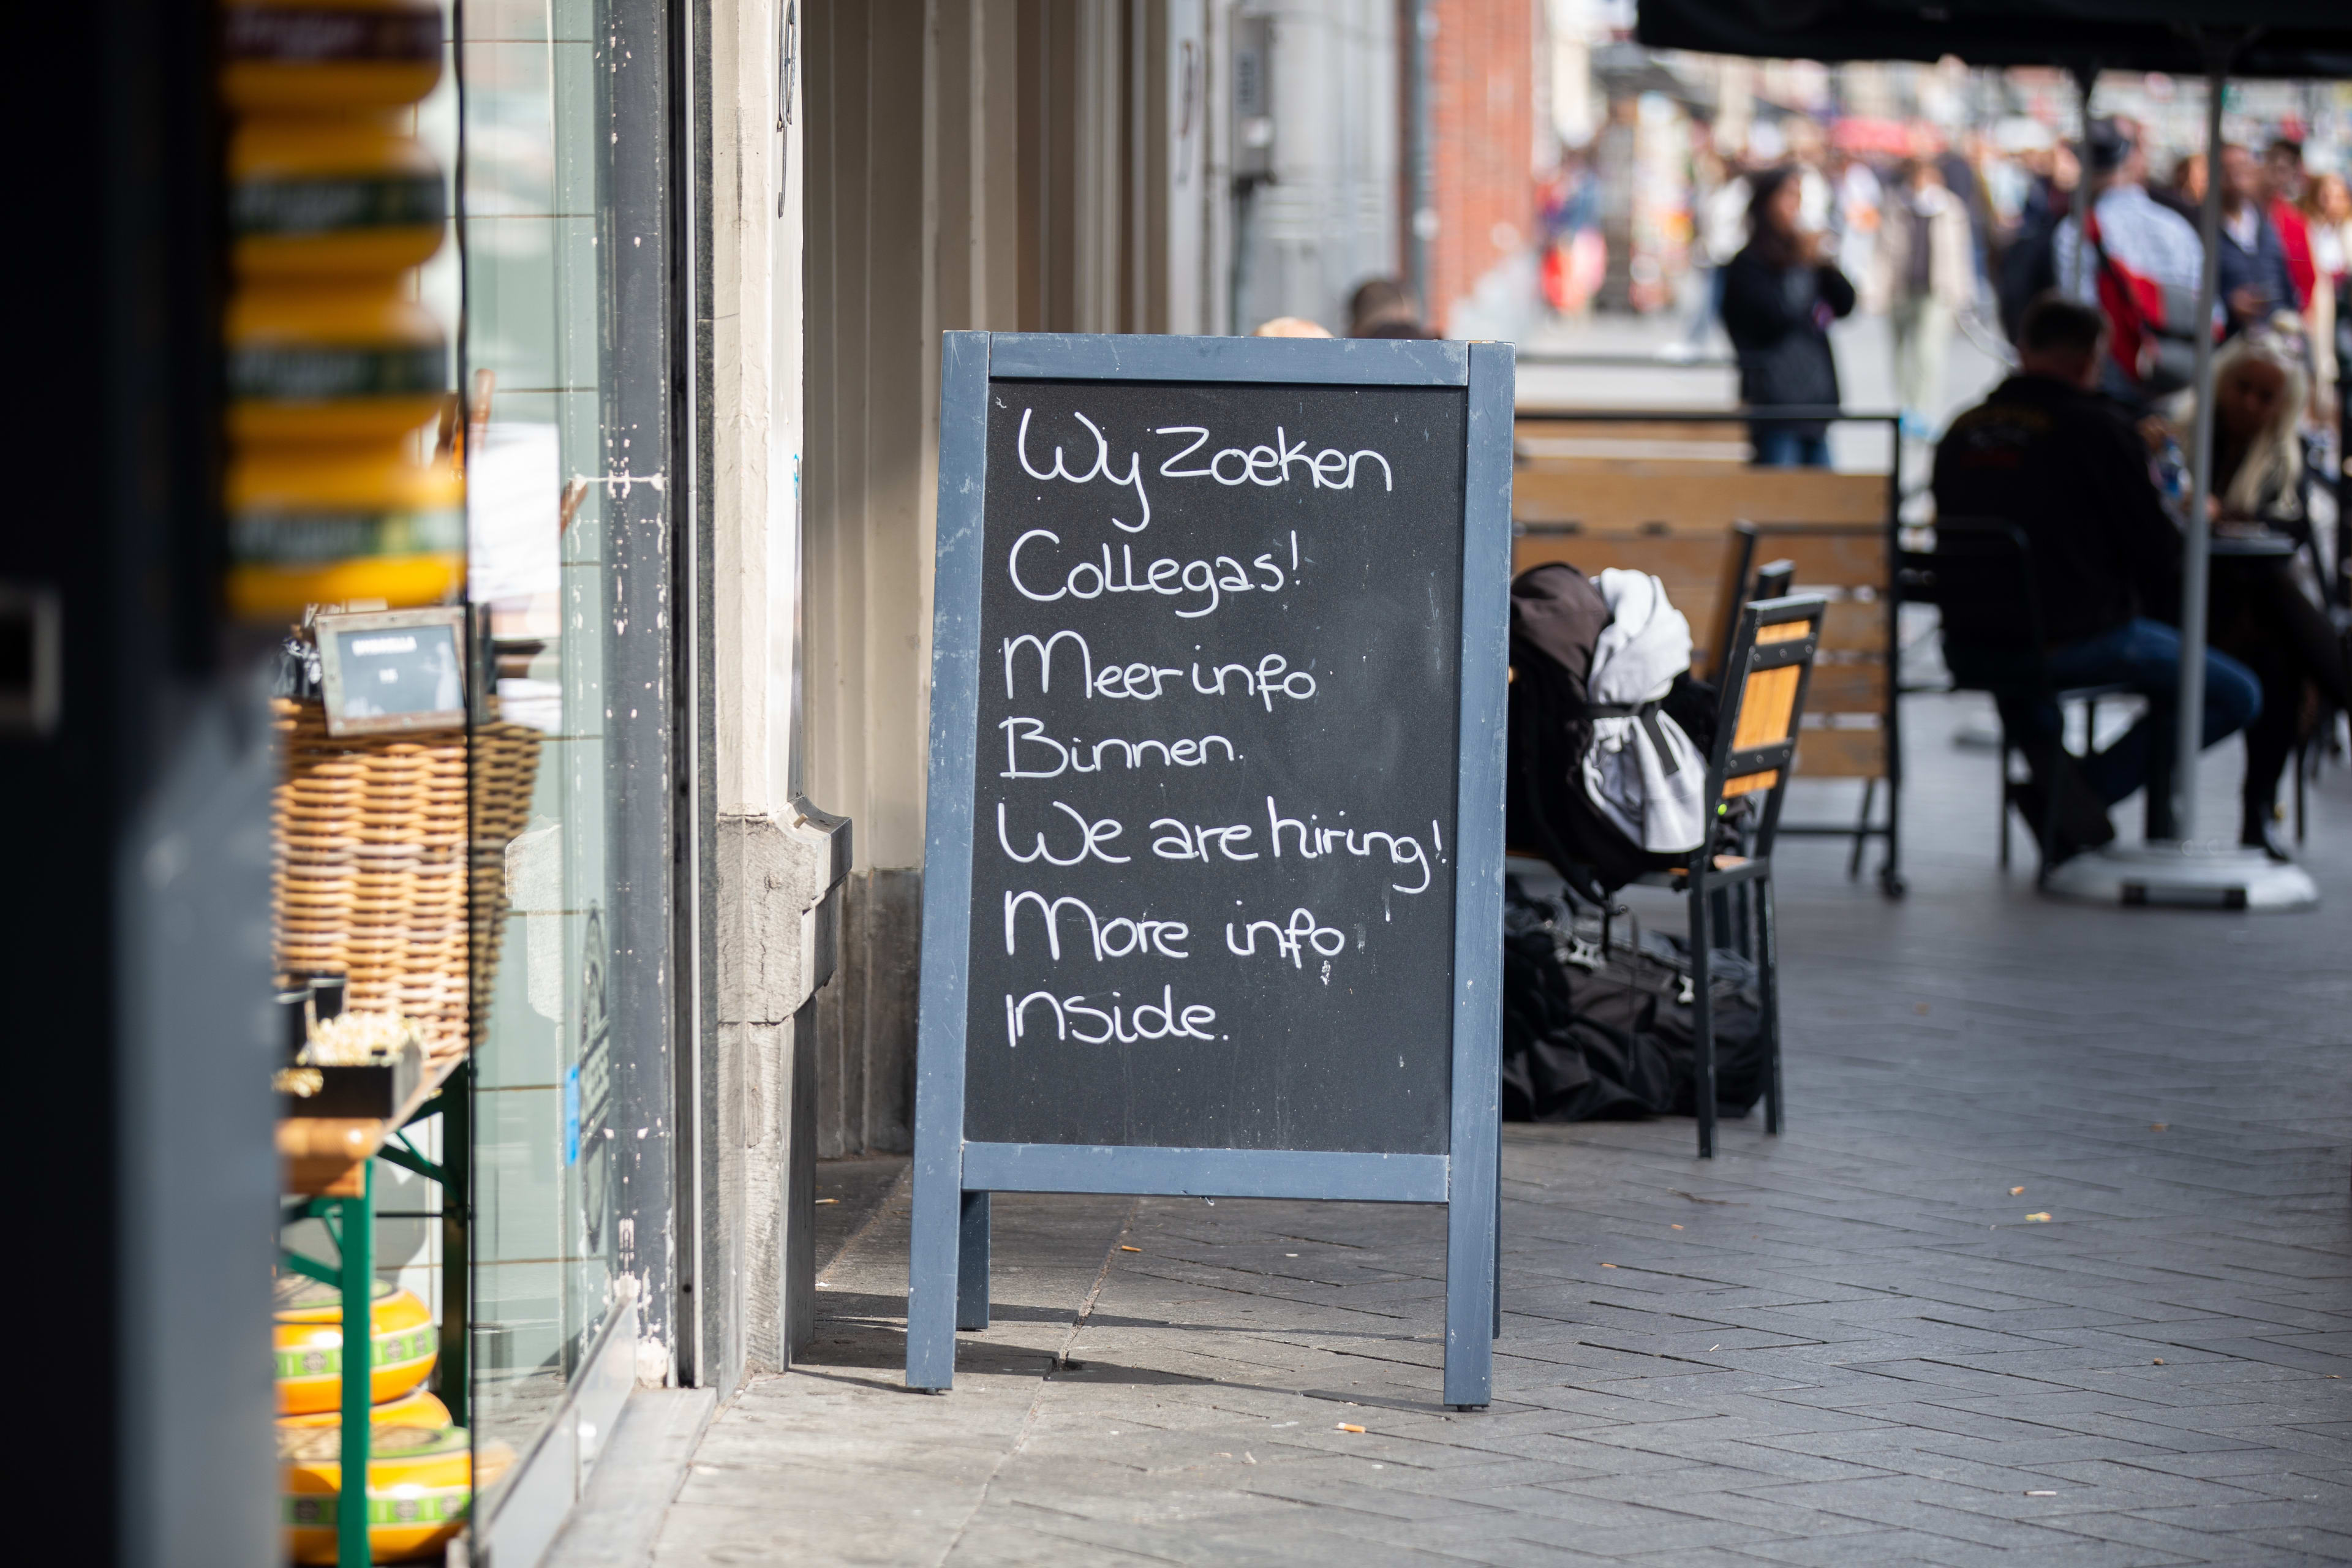 Wij Zoeken
Collegas!
Meer info
Binnen.
We are hiring!
More info
inside.